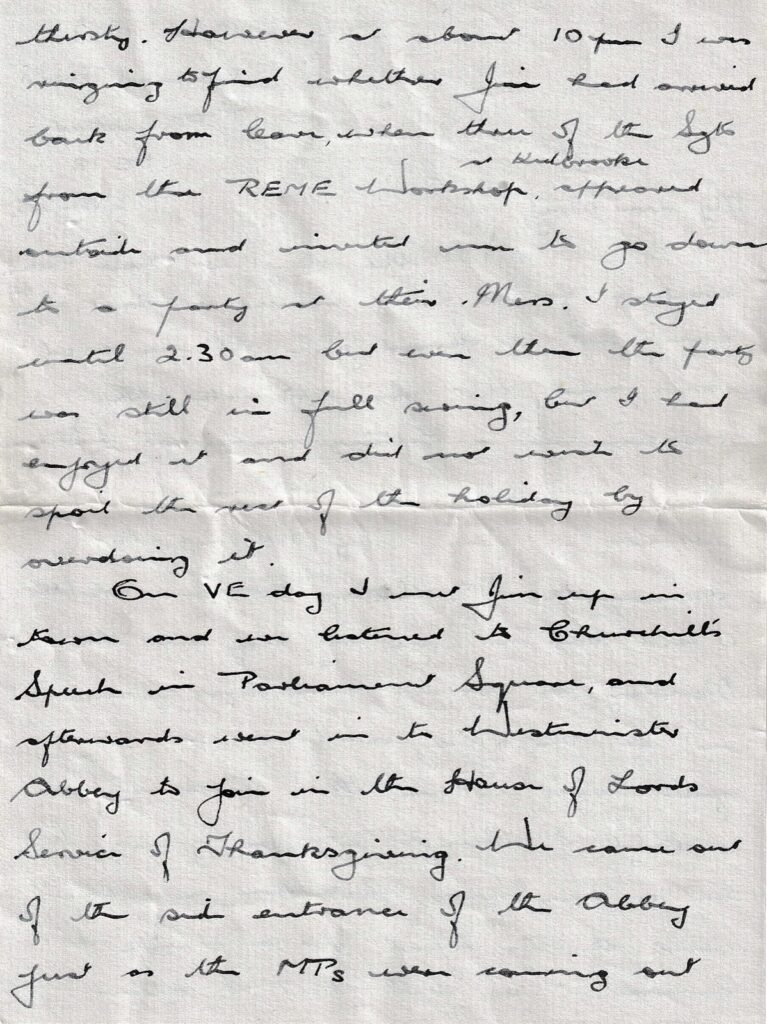 thirsty. However at about 10 pm I was
ringing to find whether Jim had arrived
back from leave, when three of the Sgts
at Kidbrooke
from the REME Workshop, appeared
outside and invited me to go down
to a party at their Mess. I stayed
until 2.30 am but even then the party
was still in full swing, but I had
enjoyed it and did not wish to
spoil the rest of the holiday by
overdoing it.
On VE day I met Jim up in
town and we listened to Churchill's
Speech in Parliament Square, and
afterwards went in to Westminster
Abbey to join in the House of Lords
Service of Thanksgiving. We came out
of the side entrance of the Abbey
just as the MPs were coming out